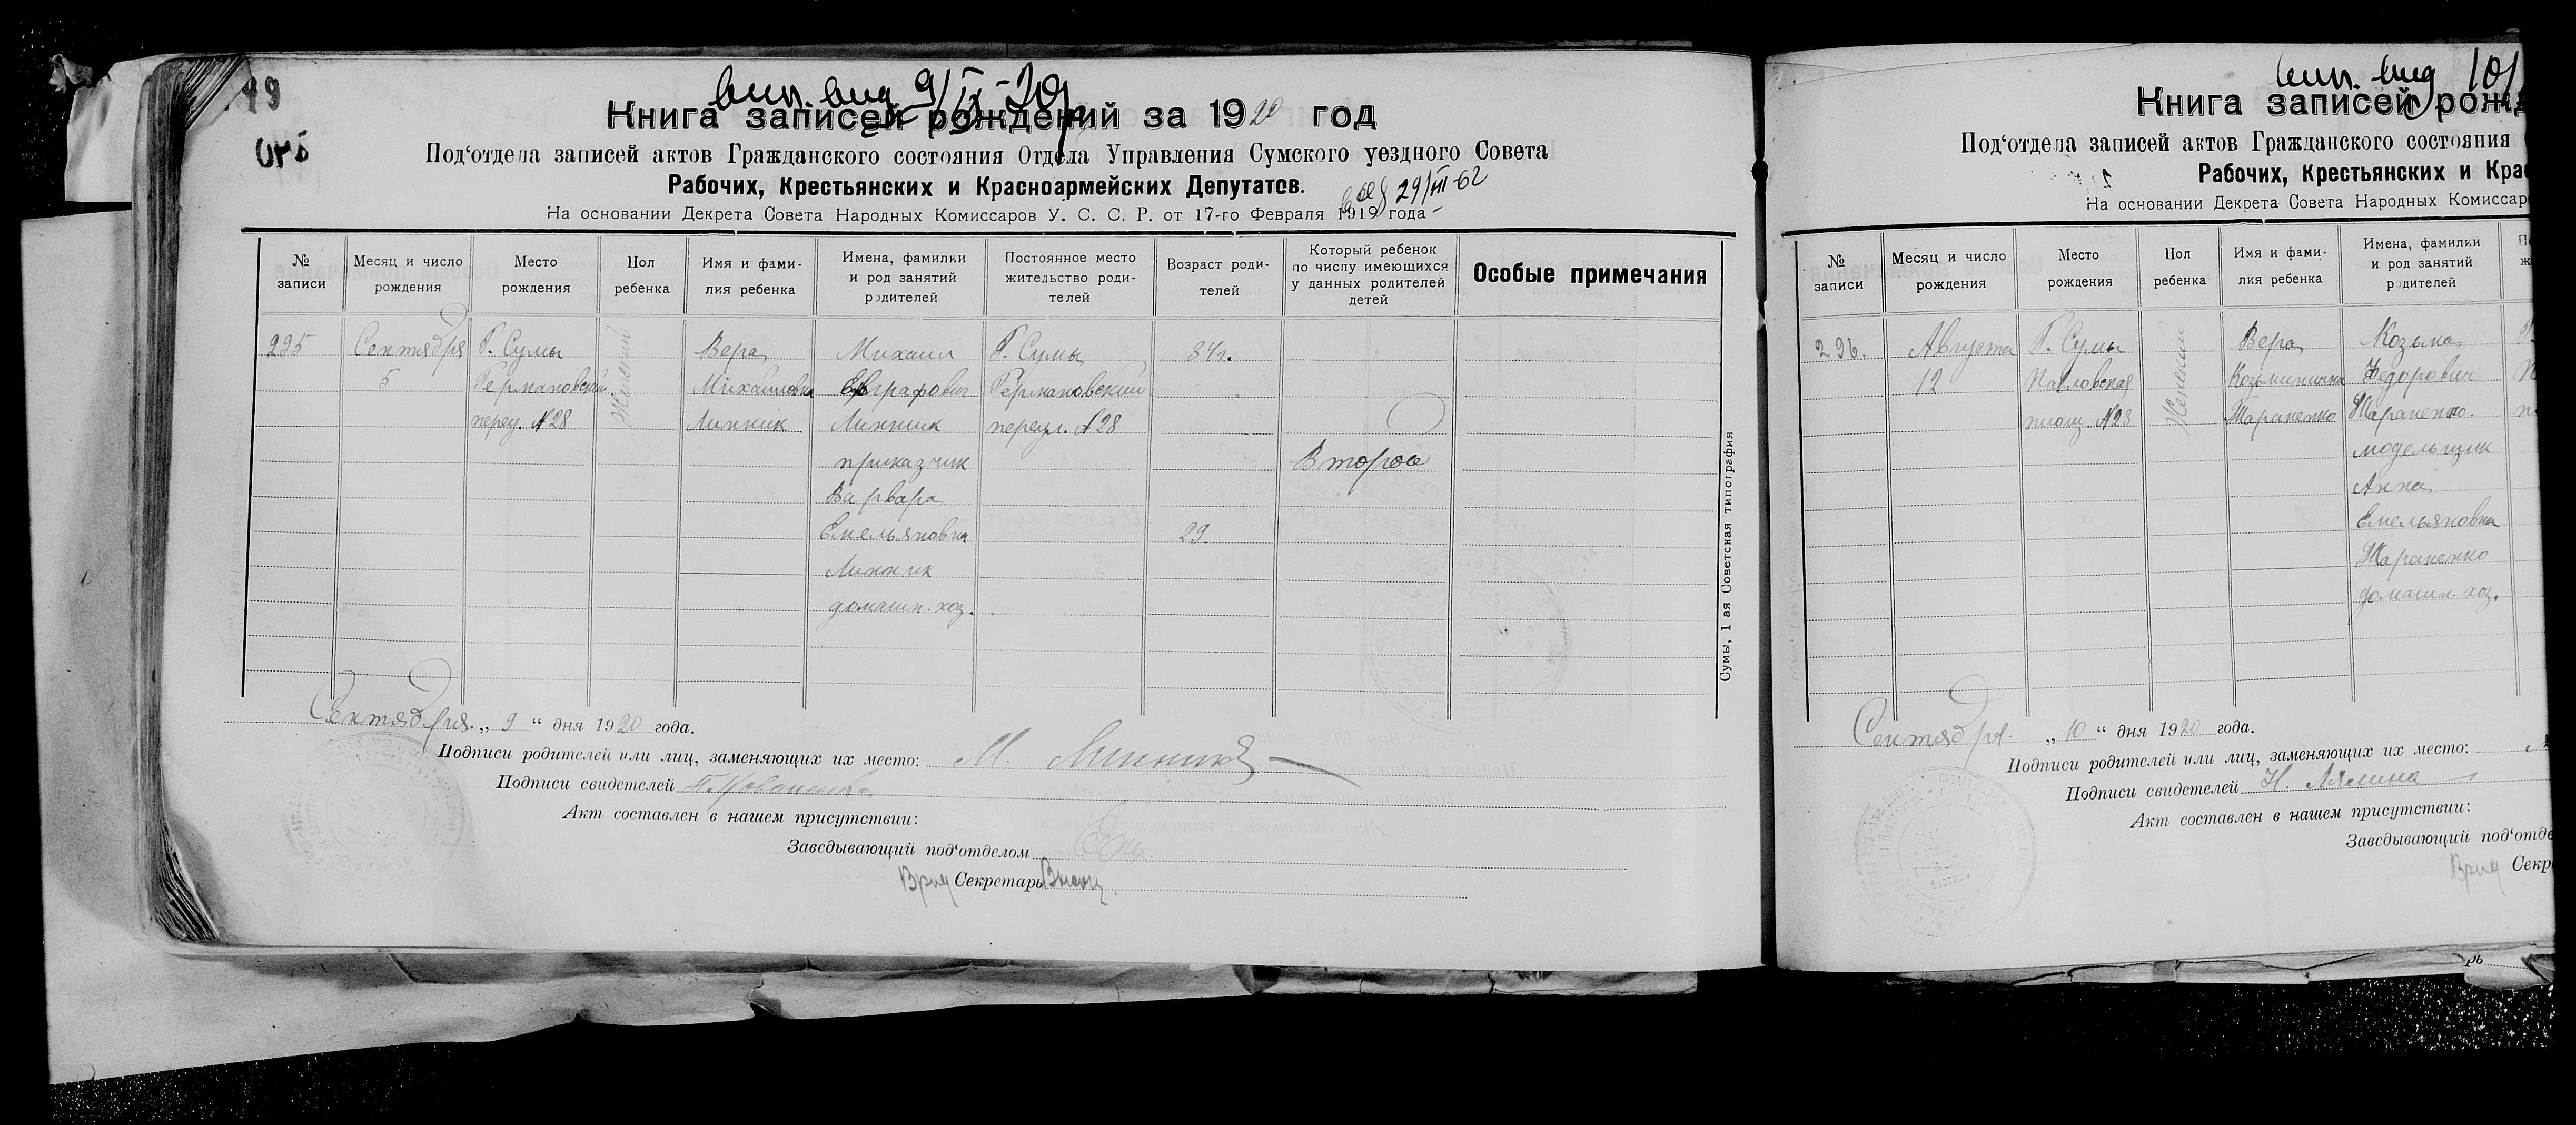 вып. вид 9/IX-20 г
49
Книга записей рождений за 1920 год
Под‘отдела записей актов Гражданского состояния Отдела Управления Сумского уездного Совета
Рабочих, Крестьянских и Красноармейских Депутатов.
29/III-62
На основании Декрета Совета Народных Комиссаров У. С. С. Р. от 17-го Февраля 1919 года
№ записи
Месяц и число рождения
Место рождения
Пол ребенка
Имя и фами- лия ребенка
Имена, фамилии и род занятий родителей
Постоянное место жительство роди- телей
Возраст роди- телей
Который ребенок по числу имеющихся у данных родителей детей
Особые примечания
295 Сентября Г. Сумы Женский Вера Михаил Г. Сумы 34 г.
5 Германовский Михайловна Евграфович Германовский
переу. №28 Линник Линник переул. №28
приказчик Второе
Варвара
Емельяновна 29.
Линник
домашн. хоз.
Сумы, 1 ая Советская типография
Сентября „ 9 “ дня 1920 года.
Подписи родителей или лиц, заменяющих их место: М. Линник
Подписи свидетелей
Акт составлен в нашем присутствии:
Заведывающий под‘отделом
Врид Секретарь
вып. вид 10/
Книга записей рожд
Под‘отдела записей актов Гражданского состояния
Рабочих, Крестьянских и Крас
На основании Декрета Совета Народных Комиссар
№ записи
Месяц и число рождения
Место рождения
Пол ребенка
Имя и фами- лия ребенка
Имена, фамилии и род занятий родителей
296. Августа Г. Сумы Женский Вера Козьма
12 Павловская Козьминична Федорович
площ. №23 Тараненко Тараненко.
модельщик
Анна
Емельяновна
Тараненко
домашн. хоз.
Сентября „ 10 “ дня 1920 года.
Подписи родителей или лиц, заменяющих их место:
Подписи свидетелей Н. Лямина
Акт составлен в нашем присутствии:
Заведывающий под‘отде
Врид Секр